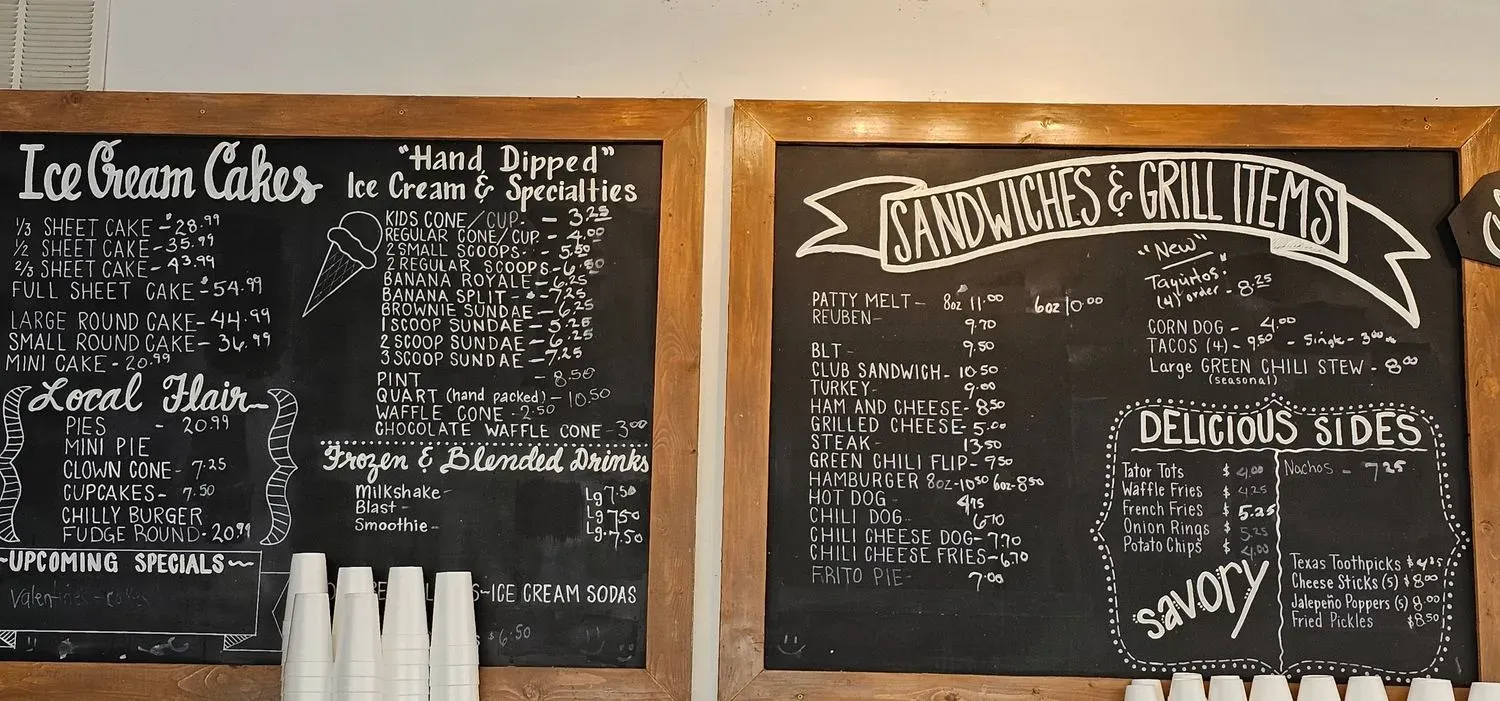 Ice Cream Cakes
1/3 SHEET CAKE - $28.99
1/2 SHEET CAKE - 35.99
2/3 SHEET CAKE - 43.99
FULL SHEET CAKE - $54.99
LARGE ROUND CAKE - 44.99
SMALL ROUND CAKE - 36.99
MINI CAKE - 20.99
Local Flair
PIES - 20.99
MINI PIE
CLOWN CONE - 7.25
CUPCAKES - 7.50
CHILLY BURGER
FUDGE ROUND - 20.99
~UPCOMING SPECIALS~
"Hand Dipped"
Ice Cream & Specialties
KIDS CONE/CUP. - 3.25
REGULAR CONE/CUP. - 4.00
2 SMALL SCOOPS - 5.50
2 REGULAR SCOOPS - 6.50
BANANA ROYALE - 6.25
BANANA SPLIT - 7.25
BROWNIE SUNDAE - 6.25
1 SCOOP SUNDAE - 5.25
2 SCOOP SUNDAE - 6.25
3 SCOOP SUNDAE - 7.25
PINT - 8.50
QUART (hand packed) - 10.50
WAFFLE CONE - 2.50
CHOCOLATE WAFFLE CONE - 3.00
Frozen & Blended Drinks
Milkshake - Lg 7.50
Blast - Lg 7.50
Smoothie - Lg. 7.50
ICE CREAM SODAS
$6.50
SANDWICHES & GRILL ITEMS
PATTY MELT - 8oz 11.00 6oz 10.00
REUBEN - 9.70
BLT - 9.50
CLUB SANDWICH - 10.50
TURKEY - 9.00
HAM AND CHEESE - 8.50
GRILLED CHEESE - 5.00
STEAK - 13.50
GREEN CHILI FLIP - 9.50
HAMBURGER 8oz - 10.50 6oz - 8.50
HOT DOG - 4.75
CHILI DOG - 6.70
CHILI CHEESE DOG - 7.70
CHILI CHEESE FRIES - 6.70
FRITO PIE - 7.00
"New"
Taquitos:
(4) order - 8.25
CORN DOG - 4.00
TACOS (4) - 9.50 - Single - 3.00
Large GREEN CHILI STEW - 8.00
(seasonal)
DELICIOUS SIDES
Tator Tots $ 4.00
Waffle Fries $ 4.25
French Fries $ 5.25
Onion Rings $ 5.25
Potato Chips $ 4.00
savory
Nachos - 7.25
Texas Toothpicks
Cheese Sticks (5) $8.00
Jalepeño Poppers (5) 8.00
Fried Pickles $8.50